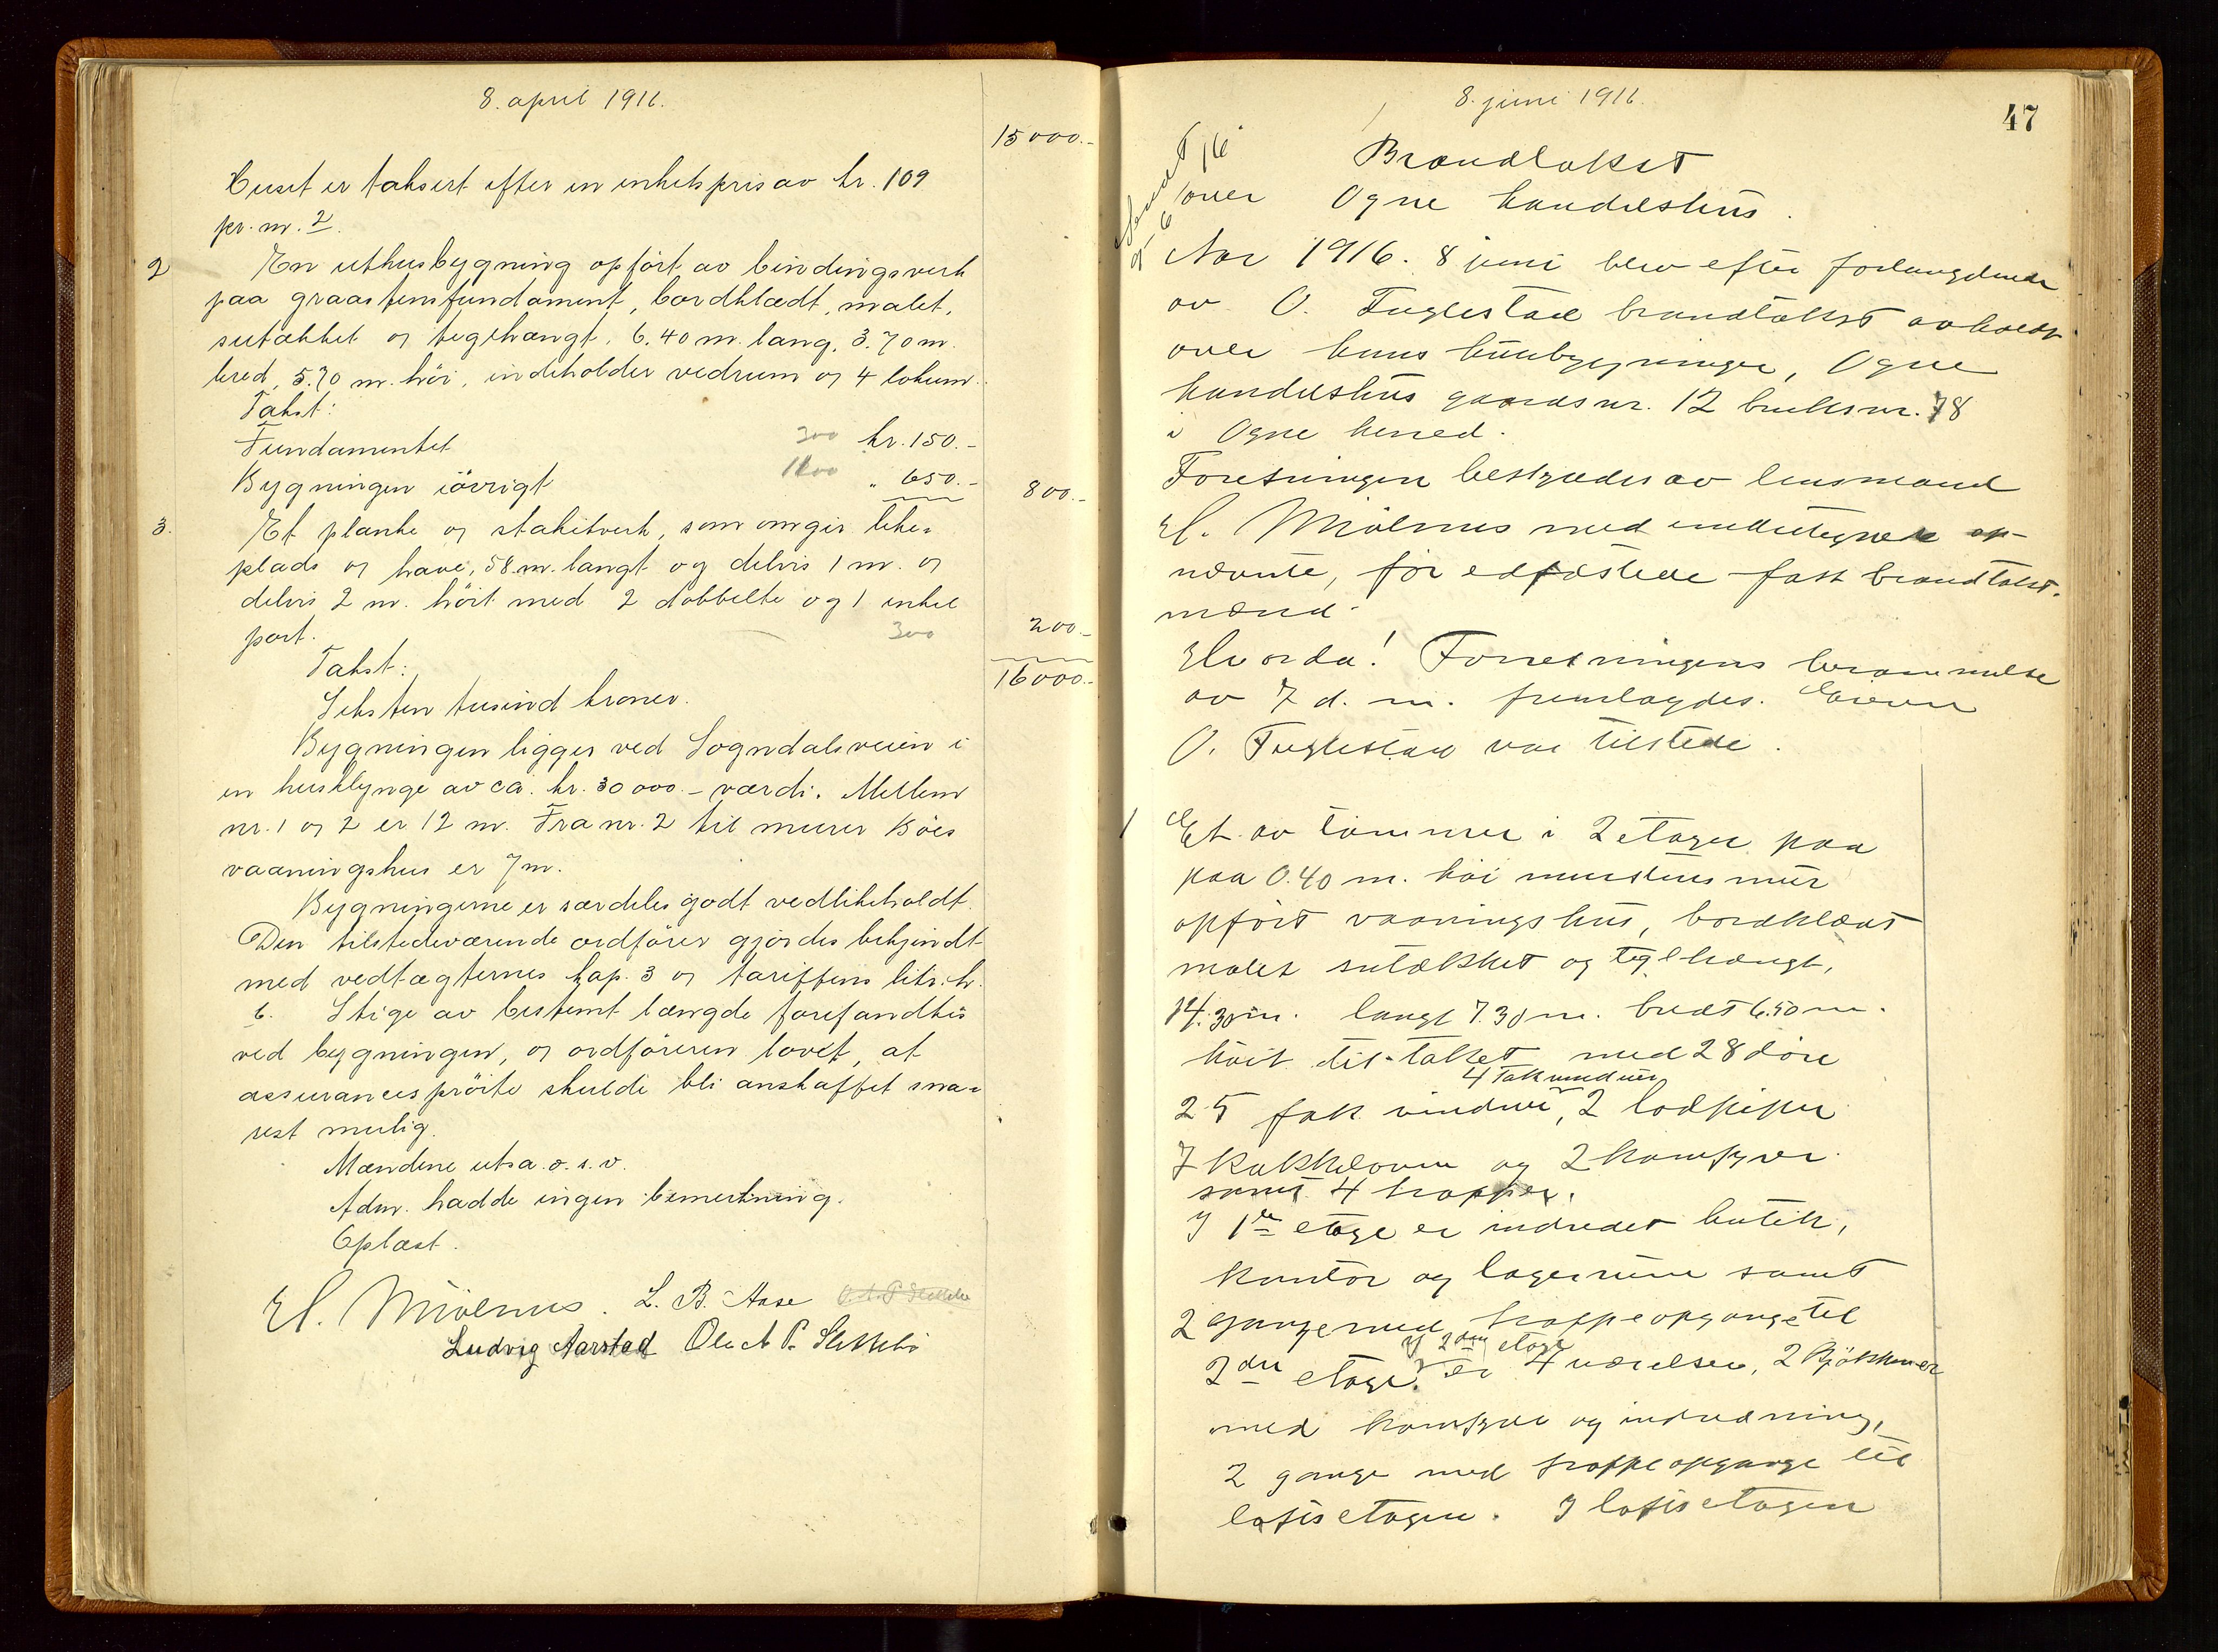 8. april 1916.
15000.-
Huset er taksert efter en enhetspris av kr. 109
pr. m. 2.
2 En uthusbygning opført av bindingsverk
paa graastensfundament, bordklædt, malet,
sutækket og teglhængt, 6.40 m. lang, 3.70 m.
bred, 5.70 m. høi, indeholder vedrum og 4 lokum.
Takst:
Fundamentet 300 kr. 150.-
Bygningen iøvrigt 1100 " 650.- 800.-
3. Et planke og stakitverk, som omgir leke-
plads og have, 58 m. langt og delvis 1 m. og
delvis 2 m. høit med 2 dobbelte og 1 enkel
port. 300 200.-
Takst: 16000.-
Seksten tusind kroner.
Bygningen ligger ved Sogndalsveien i
en husklynge av ca. kr. 30000.- værdi. Mellem
nr. 1 og 2 er 12 m. Fra nr. 2 til murer Böes
vaaningshus er 7 m.
Bygningerne er særdeles godt vedlikeholdt.
Den tilstedeværende ordfører gjørdes bekjendt
med vedtægternes kap. 3 og tariffens litr. h.
6. Stige av bestemt længde forefandtes
ved bygningen, og ordføreren lovet, at
assurancesprøite skulde bli anskaffet sna-
rest mulig.
Mændene utsa o. s. v.
Adm. hadde ingen bemerkning.
Oplæst.
El. Mjölnus. L. B. Aase
Ludvig Aarstad Ole A P. Slettebö
8. juni 1916.
47
9/6 16
Brandtakst
over Ogne handelshus.
Aar 1916. 8 juni blev efter forlangende
av O. Fuglestad brandtakst avholdt
over hans husbygninger, Ogne
handelshus gaardsnr. 12 bruksnr. 78
i Ogne herred.
Foretningen bestyredes av lensmand
El. Mjölnus med undertegnede op-
nævnte, før edfæstede fast brandtakst-
mænd.
Hvorda! Forretningens berammelse
av 7 d. m. fremlagdes. Eieren
O. Fuglestad var tilstede.
1 Et av tømmer i 2 etager paa
paa 0.40 m. høi murstensmur
opført vaaningshus, bordklædt
malet sutækket og teglhængt,
14.30 m. langt 7.30 m. bredt 6.50 m.
høit til taket med 28 døre
4 takvinduer
25 fak vinduer, 2 lodpiper
7 kakkelovne og 2 komfyrer
samt 4 trapper.
I 1ste etage er indredet butik,
kontor og lagerrum samt
2 gange med trappeopgange til
I 2den etage
2den etage. er 4 værelser, 2 Kjøkkener
med komfyre og indredning,
2 gange med trappeopgange til
loftsetagen. I loftsetagen